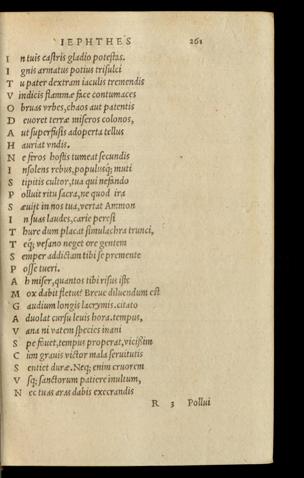 IEPHTHES 261
I n tuis castris gladio potestas.
I gnis armatus potius trisulci
T u pater dextram iaculis tremendis
V indicis flammæ face contumaces
O bruas vrbes, chaos aut patentis
D euoret terræ miseros colonos,
A ut superfusis adoperta tellus
H auriat vndis.
N e feros hostis tumeat secundis
I nsolens rebus, populusq; muti
S tipitis cultor, tua qui nefando
P olluit ritu sacra, ne quod ira
S æuijt in nos tua, vertat Ammon
I n suas laudes, carie peresi
T hure dum placat simulachra trunci,
T eq; vesano neget ore gentem
S emper addictam tibi se premente
P osse tueri.
A h miser, quantos tibi risus iste
M ox dabit fletus? Breue diluendum est
G audium longis lacrymis. citato
A duolat cursu leuis hora. tempus,
V ana ni vatem species inani
S pe fouet, tempus properat, vicissim
C um grauis victor mala seruitutis
S entiet duræ. Neq; enim cruorem
V sq; sanctorum patiere inultum,
N ec tuas aras dabis execrandis
R 3 Pollui